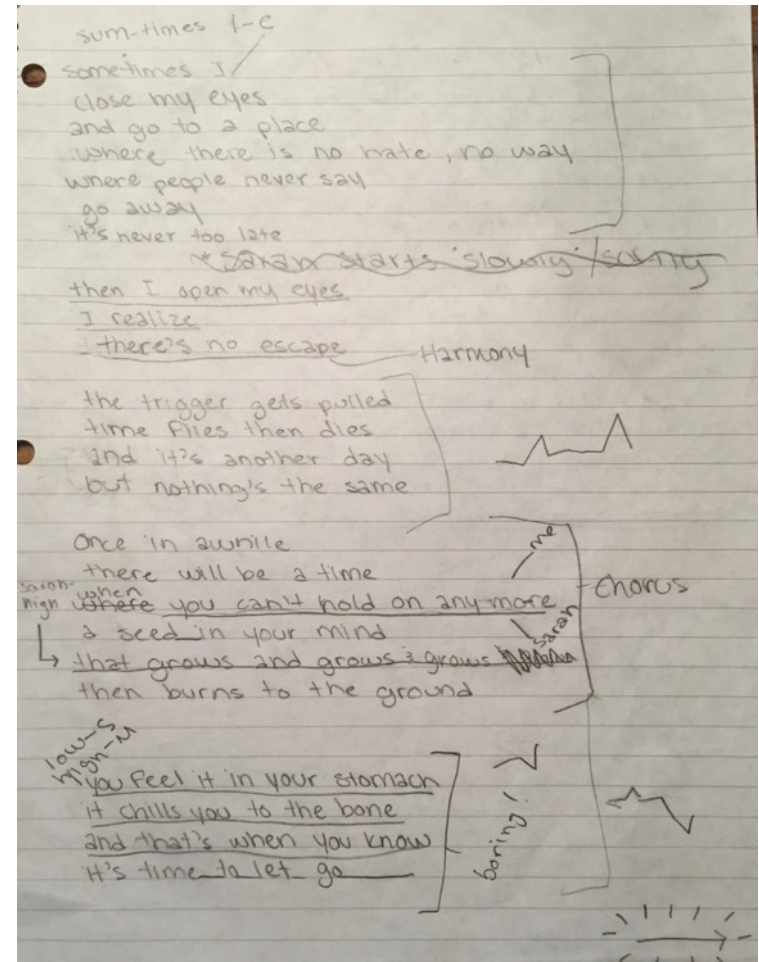 sum-times I-e
sometimes I
close my eyes
and go to a place
where there is no hate, no way
where people never say
go away
it's never too late
*Sarah starts "slowly"/
then I open my eyes
I realize
there's no escape
Harmony
the trigger gets pulled
time flies then dies
and it's another day
but nothing's the same
Once in awhile
there will be a time
me
Chorus
sarah-
high
when
where you can't hold on any more
a seed in your mind
sarah
that grows and grows & grows
then burns to the ground
low-S
high-M
you feel it in your stomach
it chills you to the bone
and that's when you know
it's time to let go
boring!